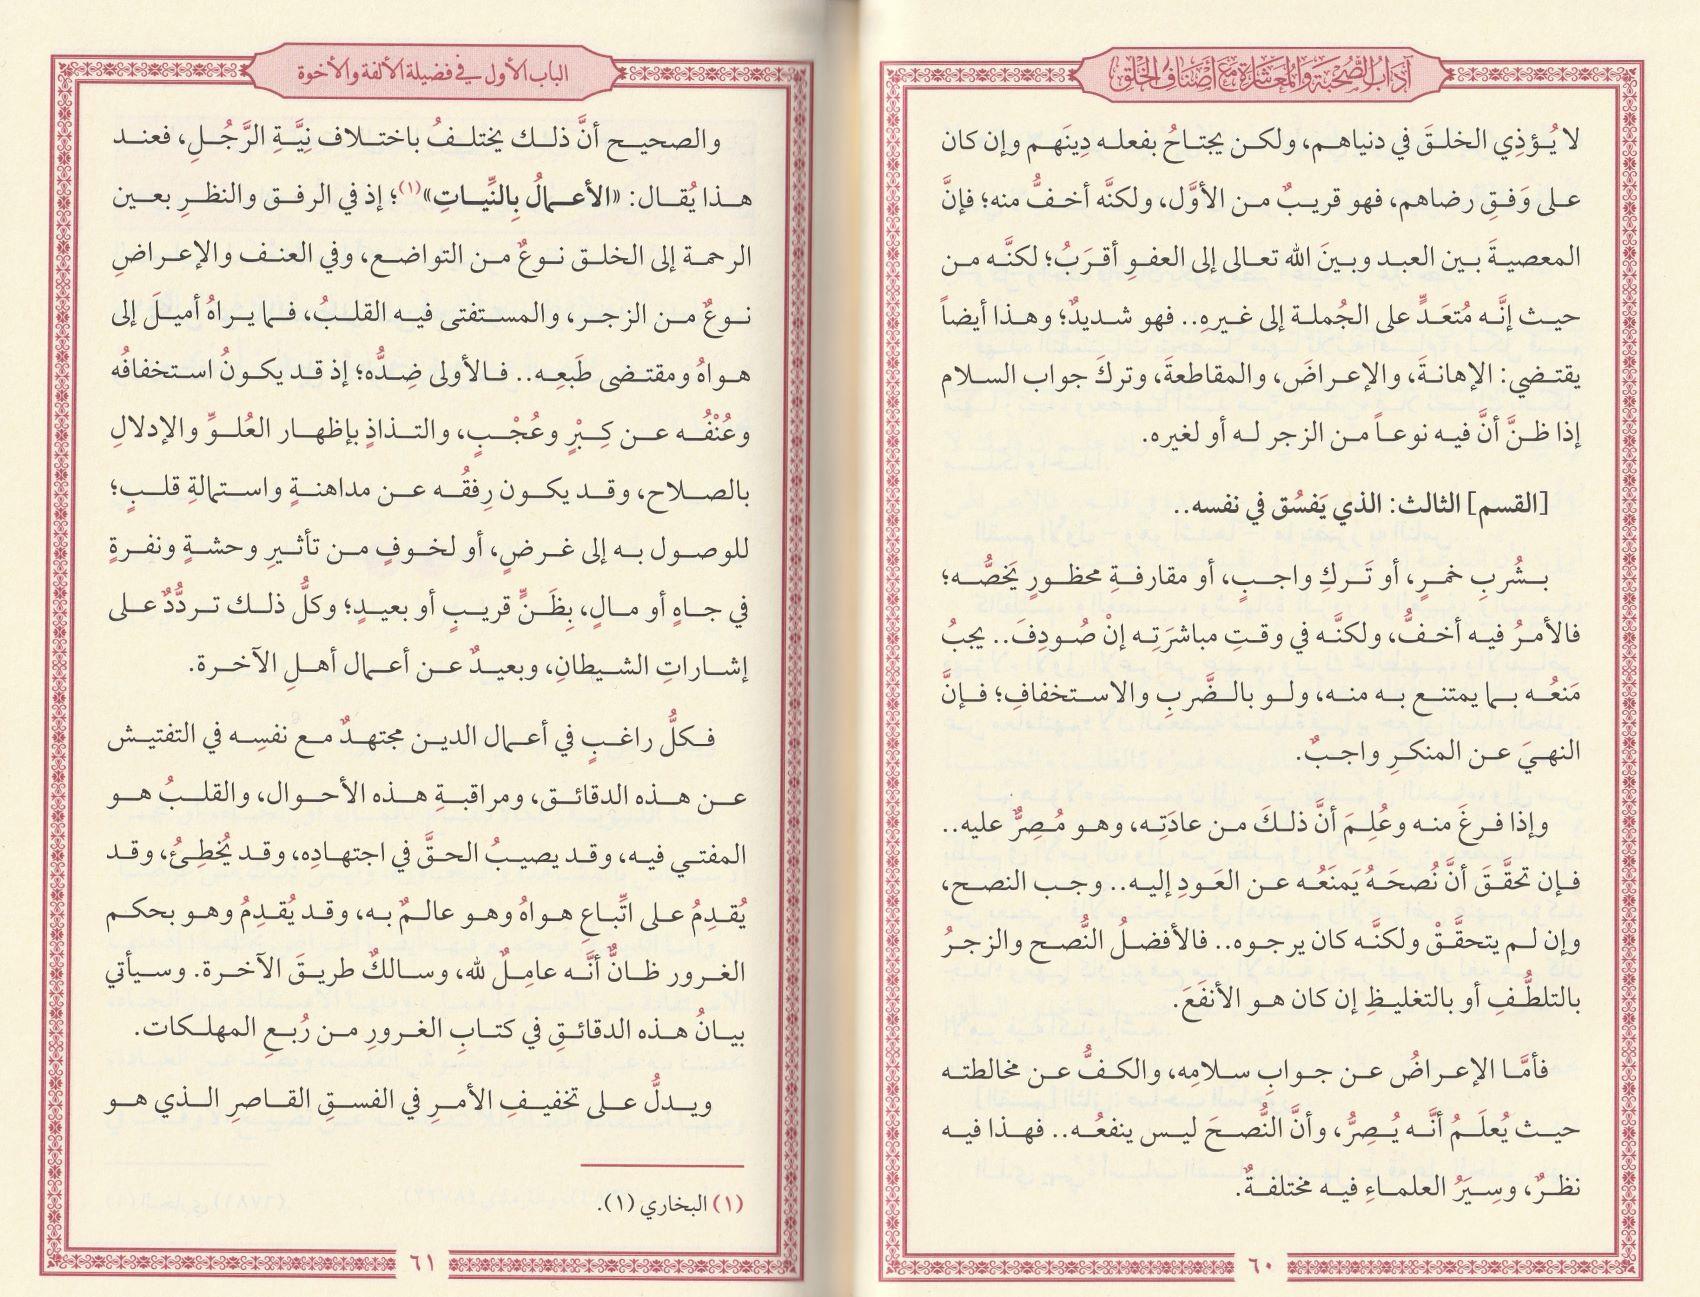 آداب الصُّحبة والمُعاشرة مع أصناف الخلق
لا يُؤذِي الخلقَ في دنياهم، ولكن يجتاحُ بفعله دِينَهم وإن كان
على وَفقِ رضاهم، فهو قريبٌ من الأوَّل، ولكنَّه أخفُّ منه؛ فإنَّ
المعصيةَ بين العبد وبينَ الله تعالى إلى العفوِ أقرَبُ؛ لكنَّه من
حيث إنَّه مُتعَدٍّ على الجُملة إلى غيرِهِ.. فهو شديدٌ؛ وهذا أيضاً
يقتضي: الإهانةَ، والإعراضَ، والمقاطعةَ، وتركَ جواب السلام
إذا ظنَّ أنَّ فيه نوعاً من الزجر له أو لغيره.
[القسم] الثالث: الذي يَفسُق في نفسه..
بشُربِ خمرٍ، أو تَركِ واجبٍ، أو مقارفةِ محظورٍ يَخصُّه؛
فالأمرُ فيه أخفُّ، ولكنَّه في وقتِ مباشرَتِه إنْ صُودِفَ.. يجبُ
مَنعُه بما يمتنع به منه، ولو بالضَّربِ والاستخفافِ؛ فإنَّ
النهيَ عن المنكرِ واجبٌ.
وإذا فرغَ منه وعُلِمَ أنَّ ذلكَ من عادَتِه، وهو مُصِرٌّ عليه..
فإن تحقَّقَ أنَّ نُصحَهُ يَمنَعُه عن العَودِ إليه.. وجب النصح،
وإن لم يتحقَّقْ ولكنَّه كان يرجوه.. فالأفضلُ النُّصح والزجرُ
بالتلطُّفِ أو بالتغليظِ إن كان هو الأنفَعَ.
فأمَّا الإعراضُ عن جوابِ سلامِه، والكفُّ عن مخالطته
حيث يُعلَمُ أنَّه يُصِرُّ، وأنَّ النُّصحَ ليس ينفعُه.. فهذا فيه
نظرٌ، وسِيَرُ العلماءِ فيه مختلفةٌ.
٦٠
الباب الأول في فضيلة الألفة والأخوة
والصحيح أنَّ ذلك يختلفُ باختلاف نِيَّةِ الرَّجُلِ، فعند
هذا يُقال: «الأعمالُ بالنِّياتِ»(١)؛ إذ في الرفق والنظرِ بعين
الرحمة إلى الخلق نوعٌ من التواضع، وفي العنف والإعراضِ
نوعٌ من الزجر، والمستفتى فيه القلبُ، فما يراهُ أميلَ إلى
هواهُ ومقتضى طَبعِه.. فالأولى ضِدُّه؛ إذ قد يكونُ استخفافُه
وعُنْفُه عن كِبْرٍ وعُجْبٍ، والتذاذٍ بإظهار العُلوِّ والإدلالِ
بالصلاح، وقد يكون رِفقُه عن مداهنةٍ واستمالةِ قلبٍ؛
للوصول به إلى غرضٍ، أو لخوفٍ من تأثيرِ وحشةٍ ونفرةٍ
في جاهٍ أو مالٍ، بِظَنٍّ قريبٍ أو بعيدٍ؛ وكلُّ ذلك تردُّدٌ على
إشاراتِ الشيطانِ، وبعيدٌ عن أعمال أهلِ الآخرة.
فكلُّ راغبٍ في أعمال الدين مجتهدٌ مع نفسِه في التفتيش
عن هذه الدقائق، ومراقبةِ هذه الأحوال، والقلبُ هو
المفتي فيه، وقد يصيبُ الحقَّ في اجتهادِه، وقد يُخطِئُ، وقد
يُقدِمُ على اتِّباعِ هواهُ وهو عالمٌ به، وقد يُقدِمُ وهو بحكم
الغرور ظانٌّ أنَّه عامِلٌ لله، وسالكٌ طريقَ الآخرة. وسيأتي
بيانُ هذه الدقائقِ في كتابِ الغرورِ من رُبعِ المهلكات.
ويدلُّ على تخفيفِ الأمرِ في الفسقِ القاصرِ الذي هو
(١) البخاري (١).
٦١